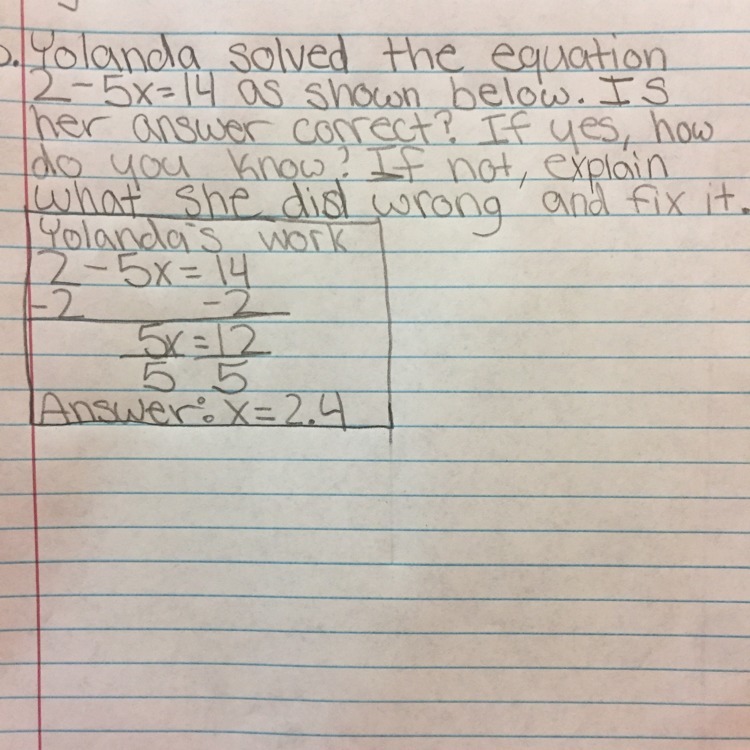 Yolanda solved the equation
2-5x=14 as shown below. Is
her answer correct? If yes, how
do you know? If not, explain
what she did wrong and fix it.
Yolanda's work
2-5x=14
-2 -2
5x=12
5 5
Answer: x=2.4